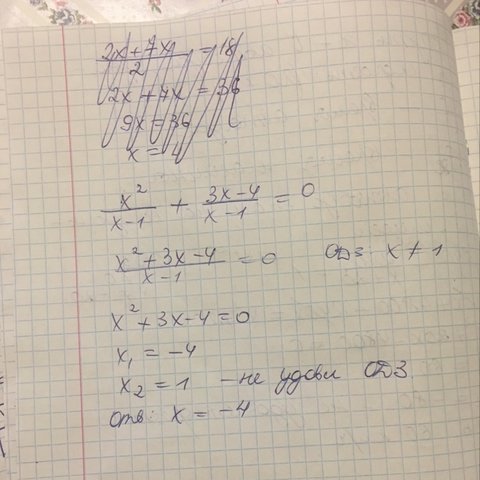 2x + 7x / 2 = 18
2x + 7x = 36
9x = 36
x = 4
x² / x-1 + 3x-4 / x-1 = 0
x² + 3x - 4 / x-1 = 0 ОДЗ: x ≠ 1
x² + 3x - 4 = 0
x₁ = -4
x₂ = 1 - не удовл ОДЗ
Отв: x = -4